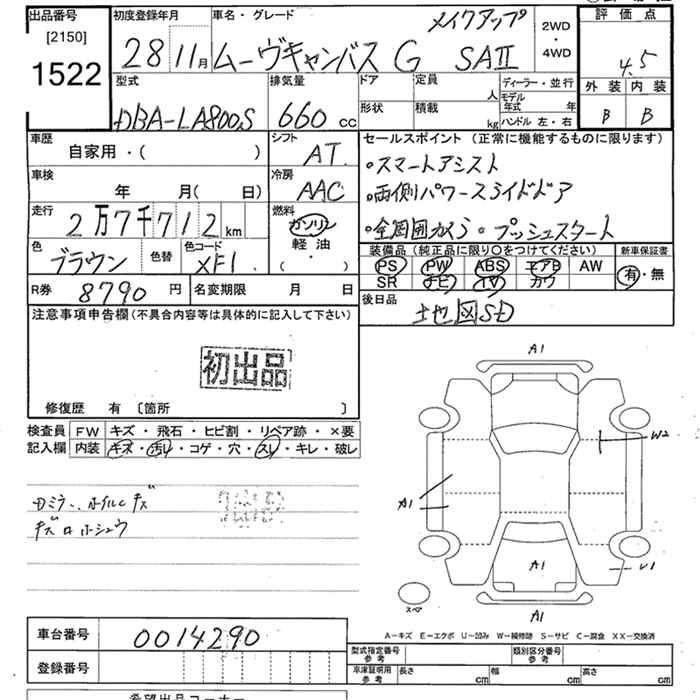 出品番号 初度登録年月 車名・グレード 評価点
[2150] メイクアップ 2WD
1522 28 11月 ムーヴキャンバス G SAII ・ 4.5
4WD
型式 排気量 ドア 定員 ディーラー・並行 外装 内装
人 モデル年式 年
DBA-LA800S 660cc 形状 積載 kg ハンドル 左・右 B B
車歴 シフト セールスポイント (正常に機能するものに限ります)
自家用・( ) AT
・スマートアシスト
車検 冷房
年 月( 日) AAC ・両側パワースライドドア
走行 燃料
2万7千712km ガソリン ・全周囲カメラ・プッシュスタート
軽油
色 色替 色コード (・) 装備品 (純正品に限り〇をつけてください) 新車保証書
ブラウン XF1. PS PW ABS エアB AW 有・無
R券 8790円 名変期限 月 日 SR ナビ TV カワ
注意事項申告欄(不具合内容等は具体的に記入して下さい) 後日品 地図SD
初出品
修復歴 有 〔箇所 〕
検査員 FW キズ・飛石・ヒビ割・リペア跡・×要
記入欄 内装 キズ・汚れ・コゲ・穴・スレ・キレ・破レ
A1
W2
A1
カミラー、ホイルヒキズ
キズロホシュウ
U1
A1
スペア
A1
A－キズ E－エクボ U－凹み W－補修跡 S－サビ C－腐食 XX－交換済
車台番号 0014290
型式指定番号 参考 類別区分番号 参考
登録番号 車庫証明用 参考 長さ cm 幅 cm 高さ cm
希望出品コーナー